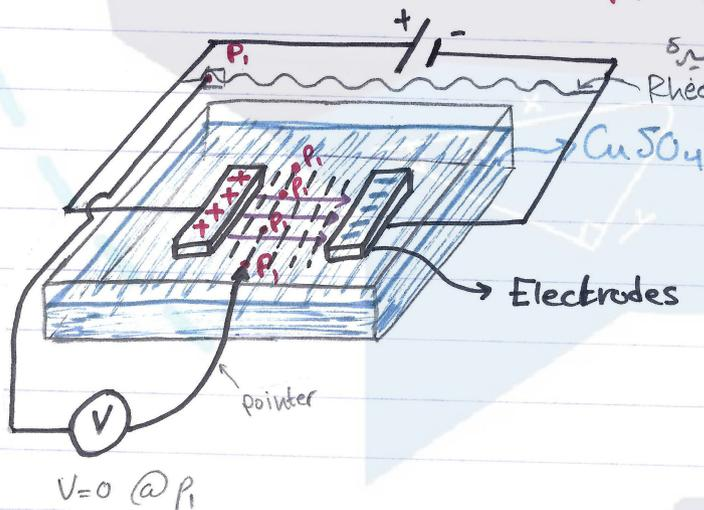 + -
P₁
CuSO₄
++++
P₁
P₁
P₁
P₁
Electrodes
pointer
V
V=0 @ P₁